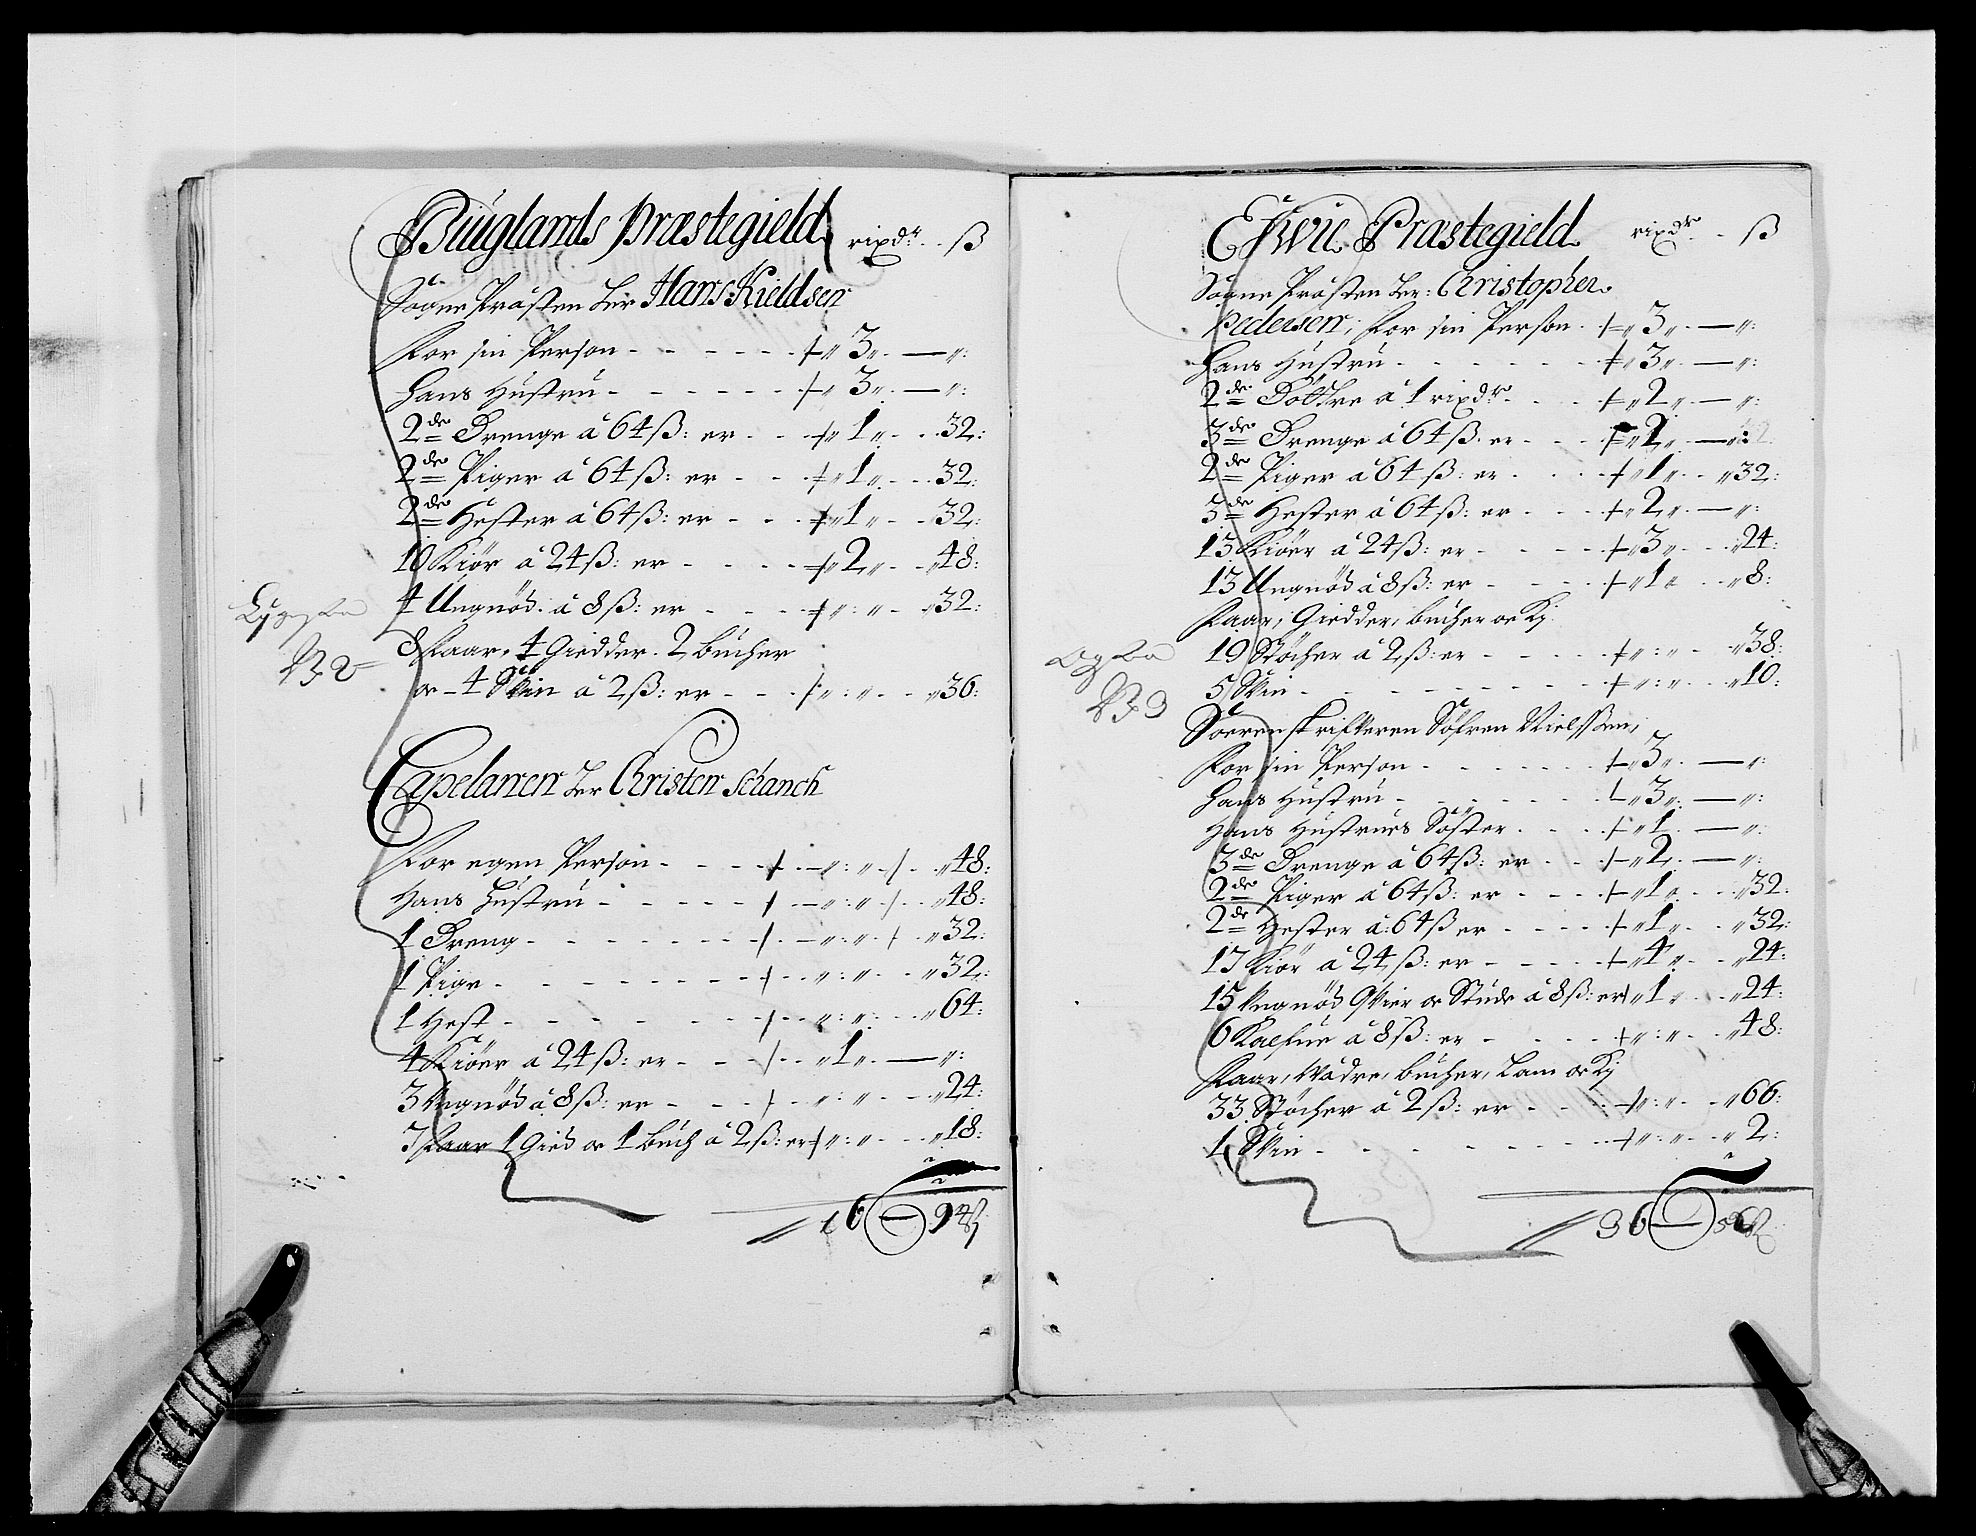 Biuglands Præstegield rixdr. ß
Sogne Præsten Her Hans Kieldsen
For sin Person - - - - - 3 — „:
Hans Hustru - - - - - 3 — „:
2de Drenge à 64 ß: er - - 1 - - 32:
2de Piger à 64 ß: er - - 1 - - 32:
2de Hester à 64 ß: er - - 1 - - 32:
10 Kiör à 24 ß: er - - - 2 - - 48:
4 Ungnöd à 8 ß: er - - - „ : „ - 32:
8 Faar, 4 Giedder. 2 bucher
oc 4 Skin à 2 ß: er - - - „ : „ - - 36:
No 2
Capelanen Her Christen Schanch
For egen Person - - - „ : „ - 48:
Hans Hustru - - - - „ : „ - - 48:
1 Dreng - - - - - „ : „ - - 32:
1 Pige - - - - - - „ : „ - - 32:
1 Hest - - - - - - „ : „ - - 64:
4 Kiöer à 24 ß: er - - - 1 — „:
3 Ungnöd à 8 ß: er - - - „ : „ - - 24:
7 Faar 1 Gied oc 1 Buch à 2 ß: er „ : „ - - 18:
16 — 94 ß
Ewie Præstegield rixdr. - ß
Sogne Præsten Her: Christopher
Pedersen, For sin Person - 3 — „:
Hans Hustru - - - - - 3 — „:
2de Döttre à 1 rixdr - - - 2 — „:
3de Drenge à 64 ß. er - - - 2 — „:
2de Piger à 64 ß: er - - - 1 - - 32:
3de Hester à 64 ß: er - - - 2 — „:
13 Kiöer à 24 ß: er - - - 3 - - 24:
13 Ungnöd à 8 ß: er - - - 1 - - 8:
Faar, Giedder, bucher oc Kj
19 Stöcher à 2 ß: er - - - „ : „ - - 38:
5 Skin - - - - - - „ : „ - - 10:
No 3
Sorrenskrifveren Söfren Nielssen,
For sin Person - - - - - 3 — „:
Hans Hustru - - - - - 3 — „:
Hans Hustrues Söster - - - 1 — „:
3de Drenge à 64 ß: er - - - 2 — „:
2de Piger à 64 ß: er - - - 1 - - 32:
2de Hester à: 64 ß er - - - 1 - - 32:
17 Kiör à 24 ß: er - - - 4 - - 24:
15 Ungnöd Qvier oc Stude à 8 ß: er 1 - - 24:
6 Kalfue à 8 ß: er - - - „ : „ - - 48:
Faar, Wædre, bucher, Lam oc Kj
33 Stöcher à 2 ß: er - - - „ : „ - - 66:
1 Skin - - - - - - „ : „ - - 2:
36 — 56 ß